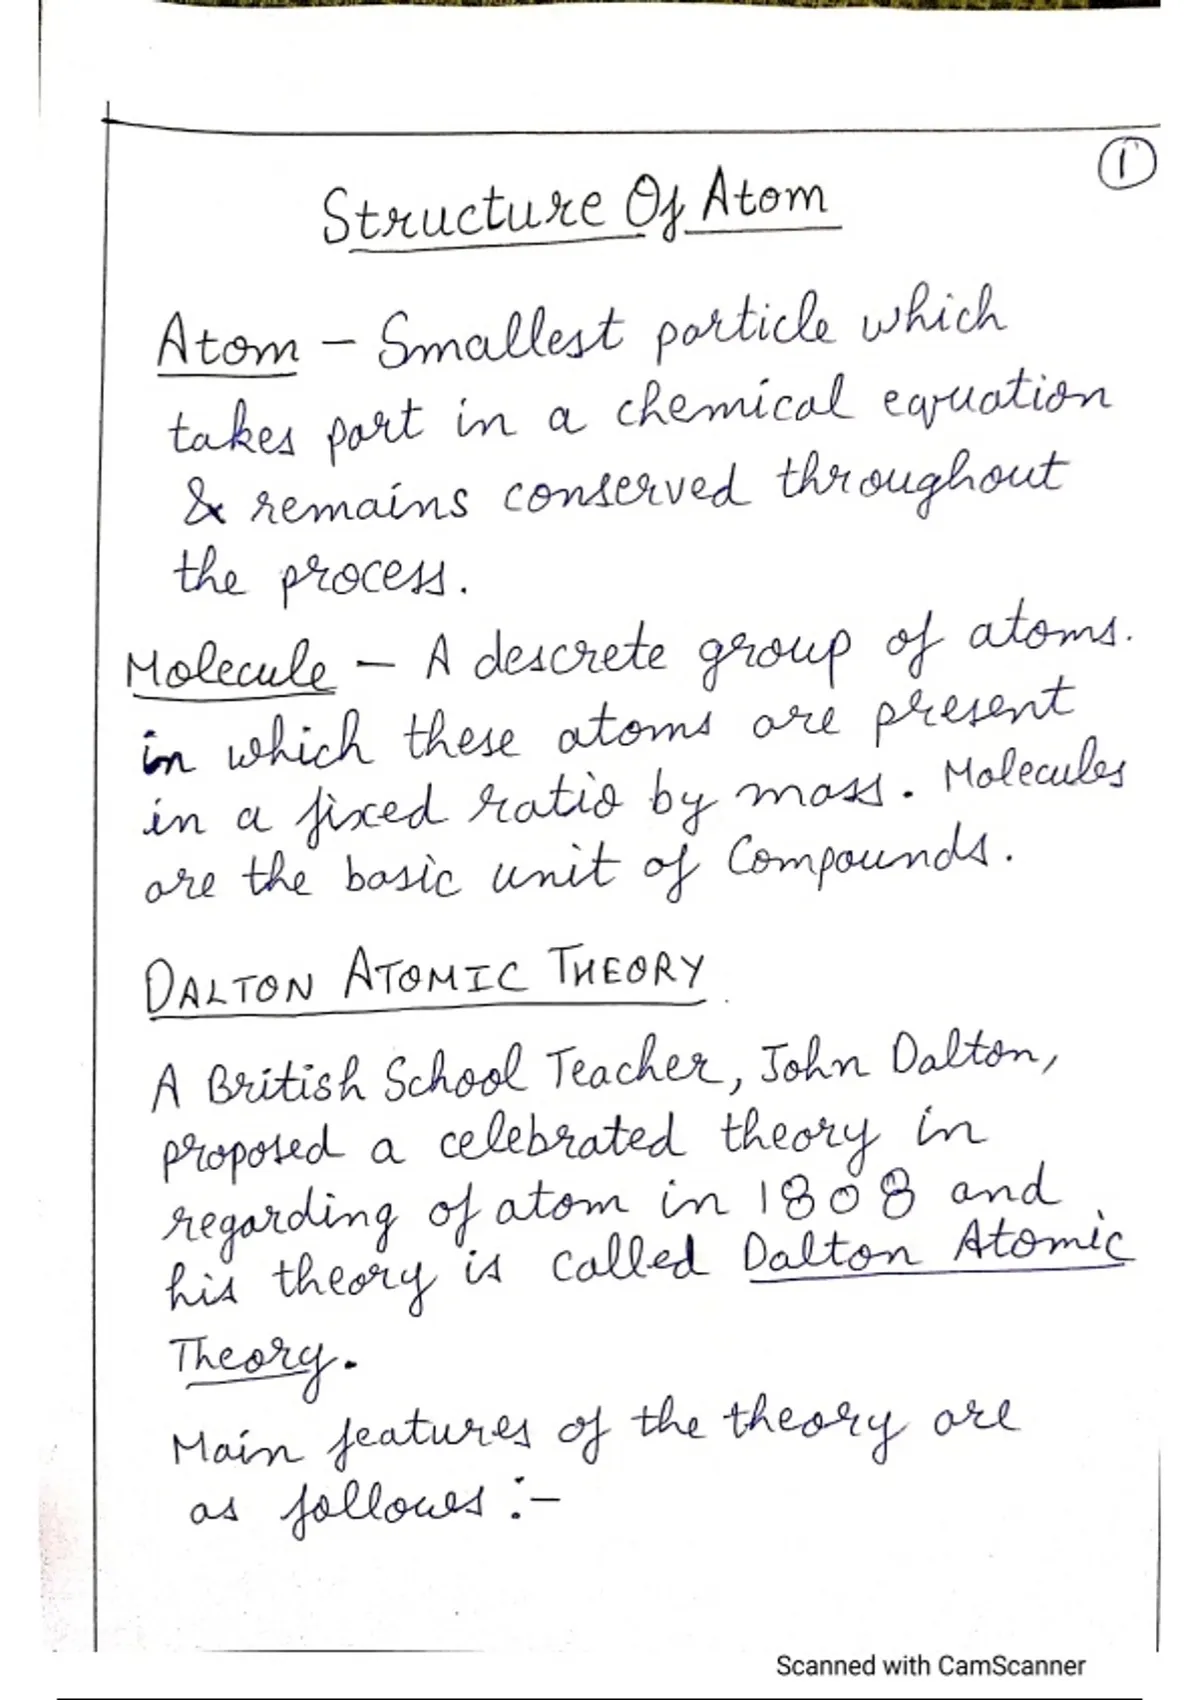 1
Structure Of Atom
Atom – Smallest particle which
takes part in a chemical equation
& remains conserved throughout
the process.
Molecule – A descrete group of atoms.
in which these atoms are present
in a fixed ratio by mass. Molecules
are the basic unit of Compounds.
DALTON ATOMIC THEORY
A British School Teacher, John Dalton,
proposed a celebrated theory in
regarding of atom in 1808 and
his theory is called Dalton Atomic
Theory.
Main features of the theory are
as follows :-
Scanned with CamScanner